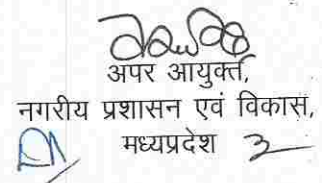 अपर आयुक्त,
नगरीय प्रशासन एवं विकास,
मध्यप्रदेश